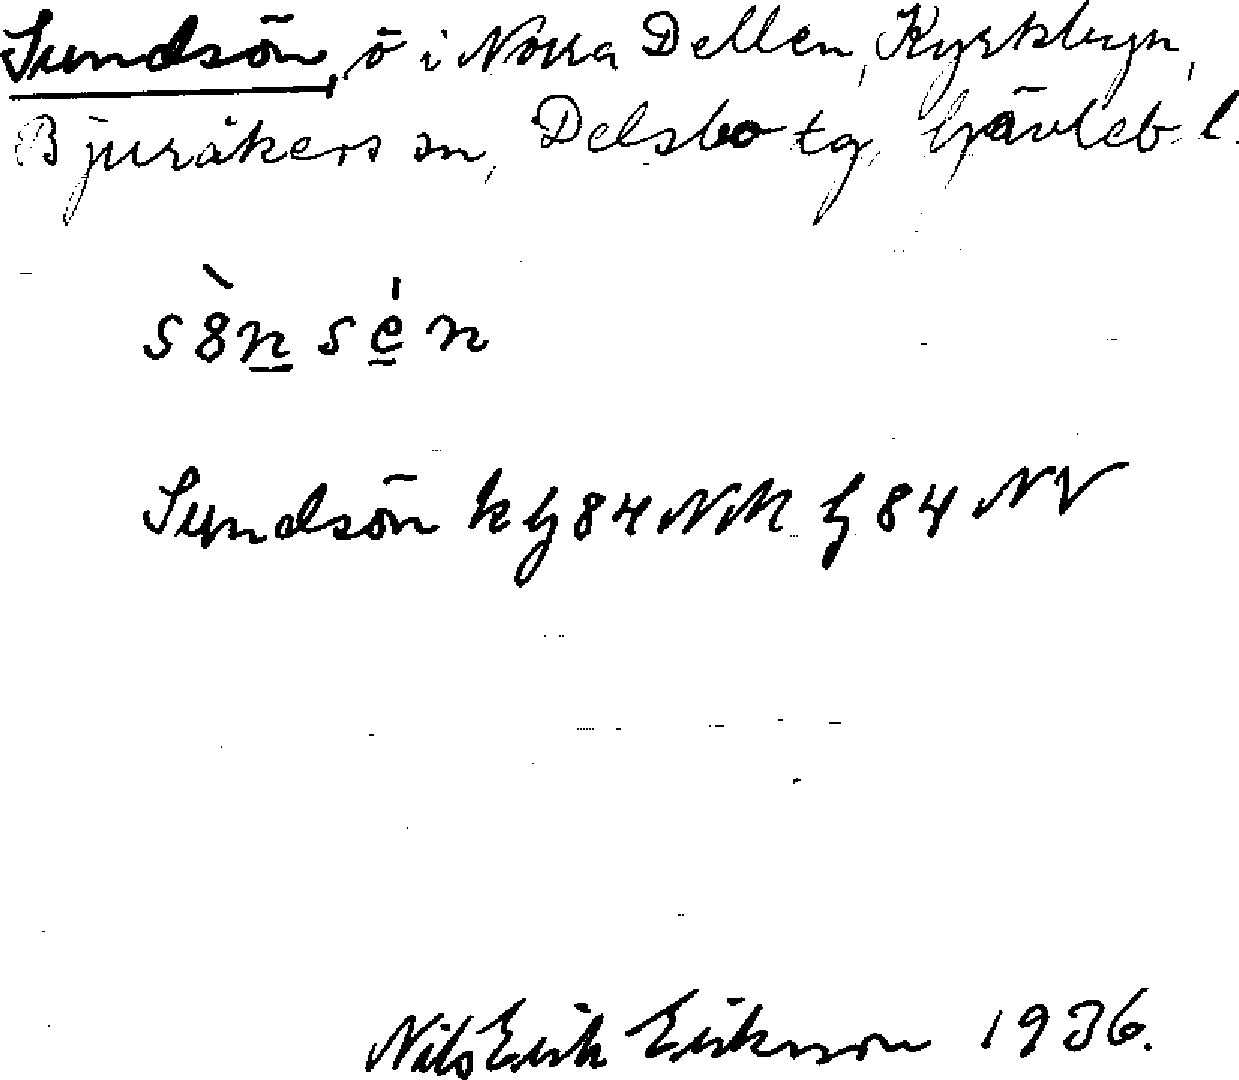 Sundsön, ö i Norra Dellen, Kyrkbyn,
Bjuråkers sn, Delsbo tg, Gävleb. l.
sò̀n sén
Sundsön kg 84 NM g 84 NV
Nils Erik Eriksson 1936.